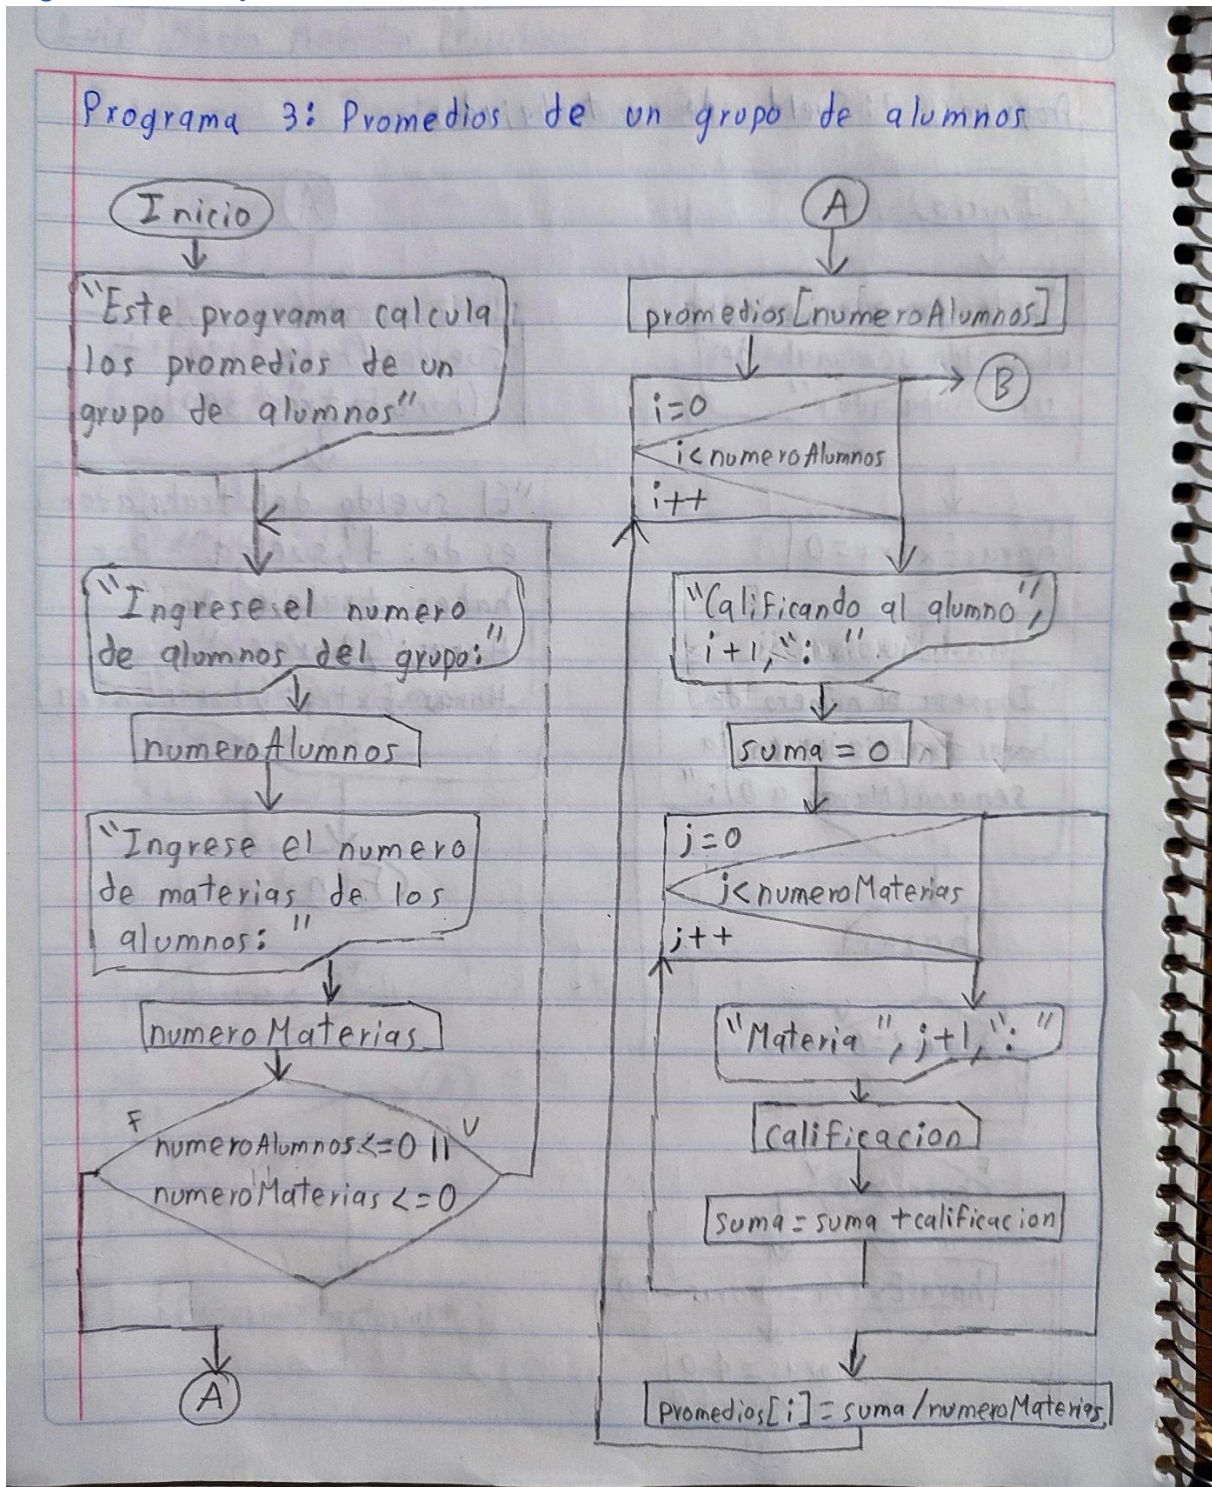 Programa 3: Promedios de un grupo de alumnos
Inicio
"Este programa calcula
los promedios de un
grupo de alumnos"
"Ingrese el numero
de alumnos del grupo:"
numeroAlumnos
"Ingrese el numero
de materias de los
alumnos: "
numeroMaterias
F
V
numeroAlumnos<=0 ||
numeroMaterias <=0
A
A
promedios[numeroAlumnos]
B
i=0
i<numeroAlumnos
i++
"Calificando al alumno",
i+1,": "
suma = 0
j=0
j<numeroMaterias
j++
"Materia ", j+1,": "
calificacion
suma = suma + calificacion
promedios[i] = suma / numeroMaterias